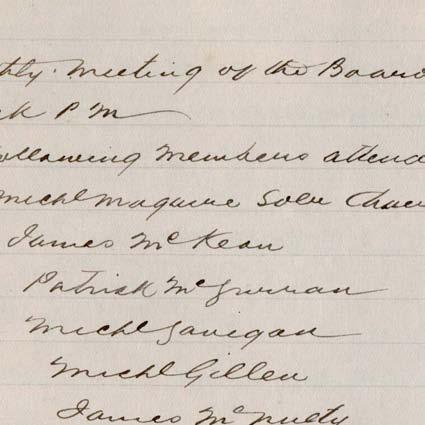 thly. Meeting of the Board
ck P M
ollowing Members attend
Michl Maguire Solr Chair
James McKean
Patrick McGurran
Michl Gavigan
Michl Gillen
James McNulty